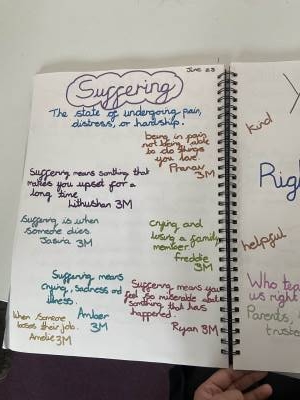 June 23
Suffering
The state of undergoing pain,
distress, or hardship.
being in pain,
not being able
to do things
you love
Pranav
3M
Suffering means somthing that
makes you upset for a
long time
Lithushan 3M
Suffering is when
someone dies
3M
Crying and
losing a family
member
freddie
3M
Suffering means
crying, sadness and
illness.
Amber
3M
Suffering means you
feel so miserable about
somthing that has
happened.
Ryan 3M
When someone
looses their job.
Amelie 3M
Kind
Righ
helpful
Who te
us right
Parents,
truste